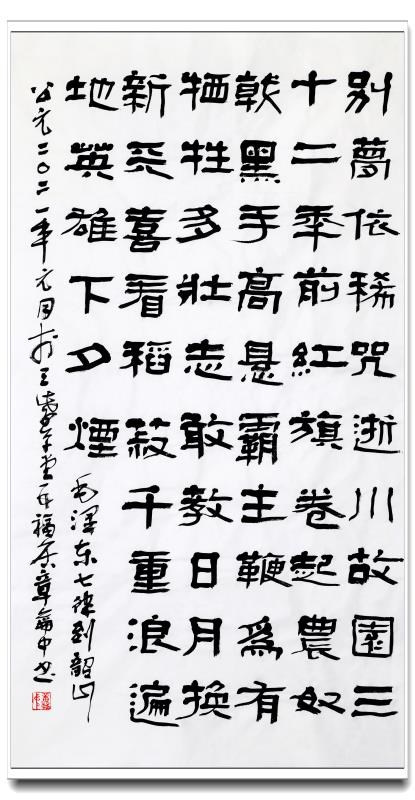 别夢依稀咒逝川故園三
十二年前紅旗卷起農奴
戟黑手高悬霸主鞭為有
牺牲多壯志敢教日月换
新天喜看稻菽千重浪遍
地英雄下夕煙
毛澤东七律到韶山
公元二〇二一年元月於三草堂福章中书